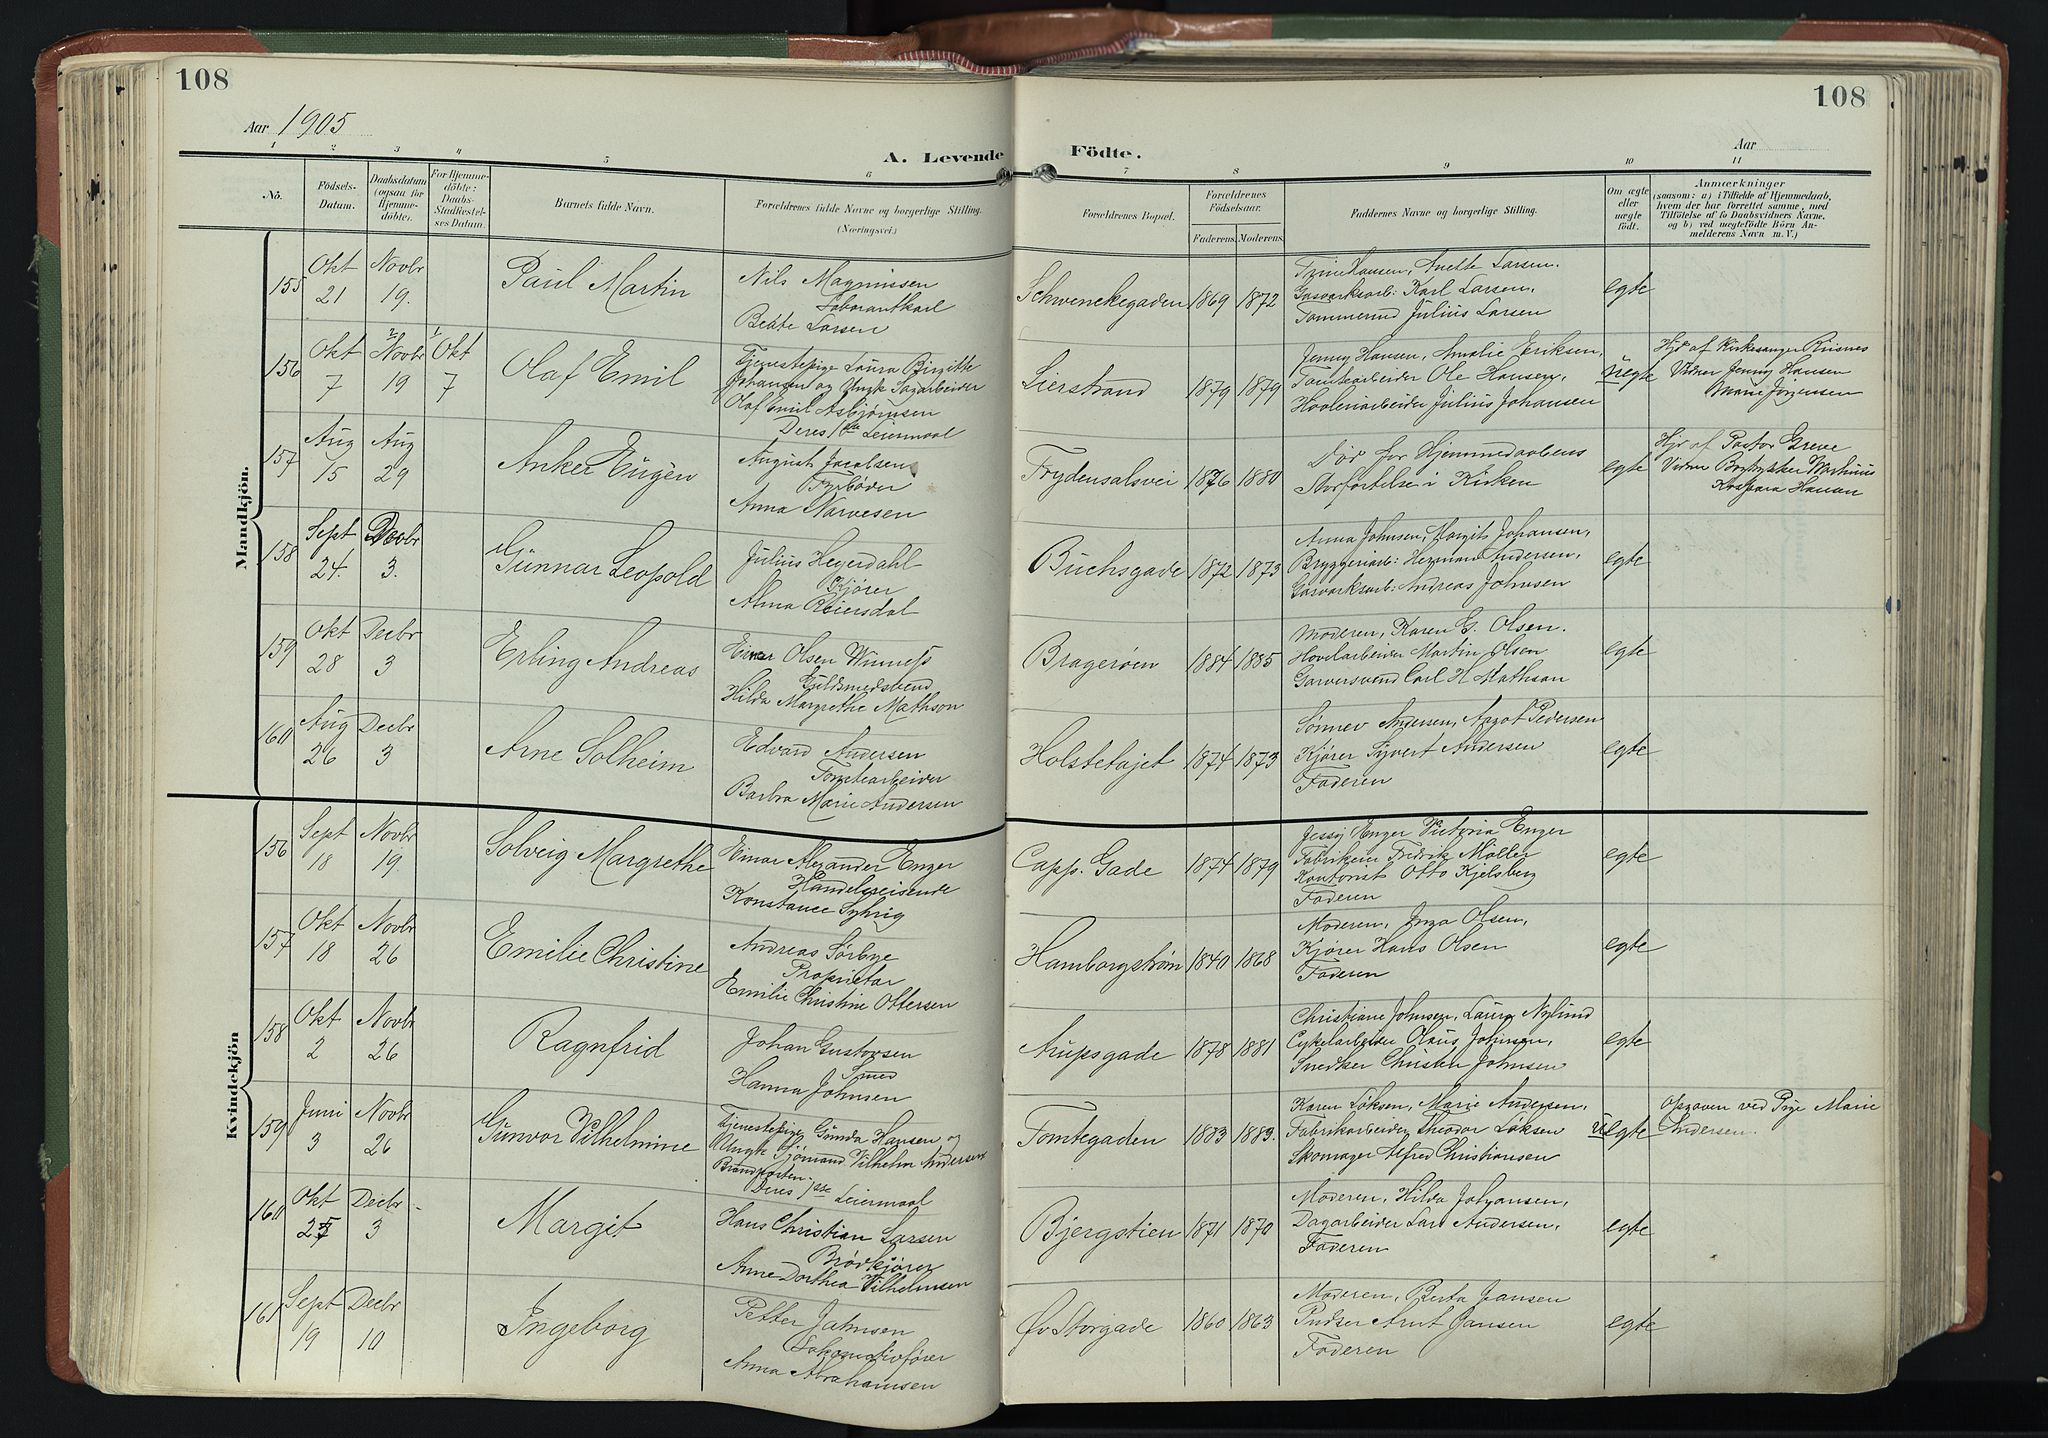 108
108
Aar 1905
Aar
A. Levende Födte.
1 2 3 4 5 6 7 8 9 10 11
No.
Födsels-
Datum.
Daabsdatum
(ogsaa for
Hjemme-
döbte).
For Hjemme-
döbte:
Daabs-
Stadfæstel-
ses Datum.
Barnets fulde Navn.
Forældrenes fulde Navne og borgerlige Stilling.
(Næringsvei.)
Forældrenes Bopæl.
Forældrenes
Födselsaar.
Faderens. Moderens.
Faddernes Navne og borgerlige Stilling.
Om ægte
eller
uægte
födt.
Anmærkninger
(saasom: a) i Tilfælde af Hjemmedaab,
hvem der har forrettet samme, med
Tilföielse af to Daabsvidners Navne,
og b) ved uægtefödte Börn An-
melderens Navn m. V.)
Mandkjön.
155
Okt
21
Novbr
19.
Paul Martin
Nils Magnussen
Laborantkarl
Beate Larsen
Schwenckegaden
1869
1872
Trine Hansen, Anette Larsen.
Gasværksarb: Karl Larsen,
Tømmermd Julius Larsen
egte
156
Okt
7
Novbr
19
Okt
7
Olaf Emil
Tjenestepige Laura Birgitte
Johansen og Ungk Sagarbeider
Olaf Emil Asbjørnsen
Deres 1ste Leiermaal
Lierstrand
1879
1879
Jenny Hansen, Amalie Eriksen,
Tomtearbeider Ole Hansen,
Høvleriarbeider Julius Johansen
Uegte
Hjd af Kirkesanger Riisnes
Vidner Jenny Hansen
Marie Jørgensen
157
Aug
15
Aug
29
Anker Eugen
August Jacobsen
Fyrbøder
Anna Narvesen
Frydensalsvei
1876
1880
Død før Hjemmedaabens
Stadfæstelse i Kirken
egte
Hjd af Pastor Greve
Vidner Bogtrykker Martinius
Kaspara Hansen
158
Sept
24.
Decbr
3.
Gunnar Leopold
Julius Heyerdahl
Kjører
Alma Reiersdal
Buchsgade
1872
1873
Anna Johnsen, Margit Johansen,
Bryggeriarb: Herman Andersen,
Gasværksarb: Andreas Johnsen
egte
159
Okt
28
Decbr
3
Erling Andreas
Einar Olsen Winness
Guldsmedsvend
Hilda Margrethe Mathson
Bragerøen
1884
1885
Moderen, Karen G. Olsen.
Høvelarbeider Martin Olsen
Garversvend Carl H Mathson
egte
160
Aug
26
Decbr
3
Arne Solheim
Edvard Andersen
Tomtearbeider
Barbra Marie Andersen
Holstetøjet
1874
1873
Sønnev Andersen, Aagot Pedersen
Kjører Syvert Andersen
Faderen
egte
Kvindekjön
156
Sept
18
Novbr
19.
Solveig Margrethe
Einar Alexander Enger
Handelsreisende
Konstance Syhrig
Capp. Gade
1874
1879
Jessy Enger Victoria Enger
Fabrikeier Fredrik Møller
Kontorist Otto Kjelsberg
Faderen
egte
157
Okt
18
Novbr
26
Emilie Christine
Andreas Sørbye
Proprietær
Emilie Christine Ottersen
Hamborgstrøm
1840
1868
Moderen, Inga Olsen,
Kjører Hans Olsen
Faderen
egte
158
Okt
2
Novbr
26
Ragnfrid
Johan Gustavsen
Smed
Hanna Johnsen
Arupsgade
1878
1881
Christiane Johnsen, Laura Nylund
Cykelarbeider Olaus Johnsen,
Snedker Christen Johnsen
egte
159
Juni
3
Novbr
26
Gunvor Vilhelmine
Tjenestepige Gunda Hansen og
Ungk Sjømand Vilhelm Andersen
Brandposten
Deres 1ste Leiermaal
Tomtegaden
1883
1883.
Karen Løksen, Marie Andersen,
Fabrikarbeider Theodor Løksen
Skomager Alfred Christiansen
Uegte
Opgaven ved Pige Marie
Andersen.
160
Okt
Decbr
3
Margit
Hans Christian Larsen
Brødkjører
Anne Dorthea Vilhelmsen
Bjergstien
1871
1870
Moderen, Hilda Johansen,
Dagarbeider Lars Andersen,
Faderen
egte
161
Sept
19
Decbr
10
Ingeborg
Petter Johnsen
Lokomotivfører
Anna Abrahamsen
Øv Storgade
1860
1863
Moderen, Berta Jansen
Pudser Arnt Jansen
Faderen
egte